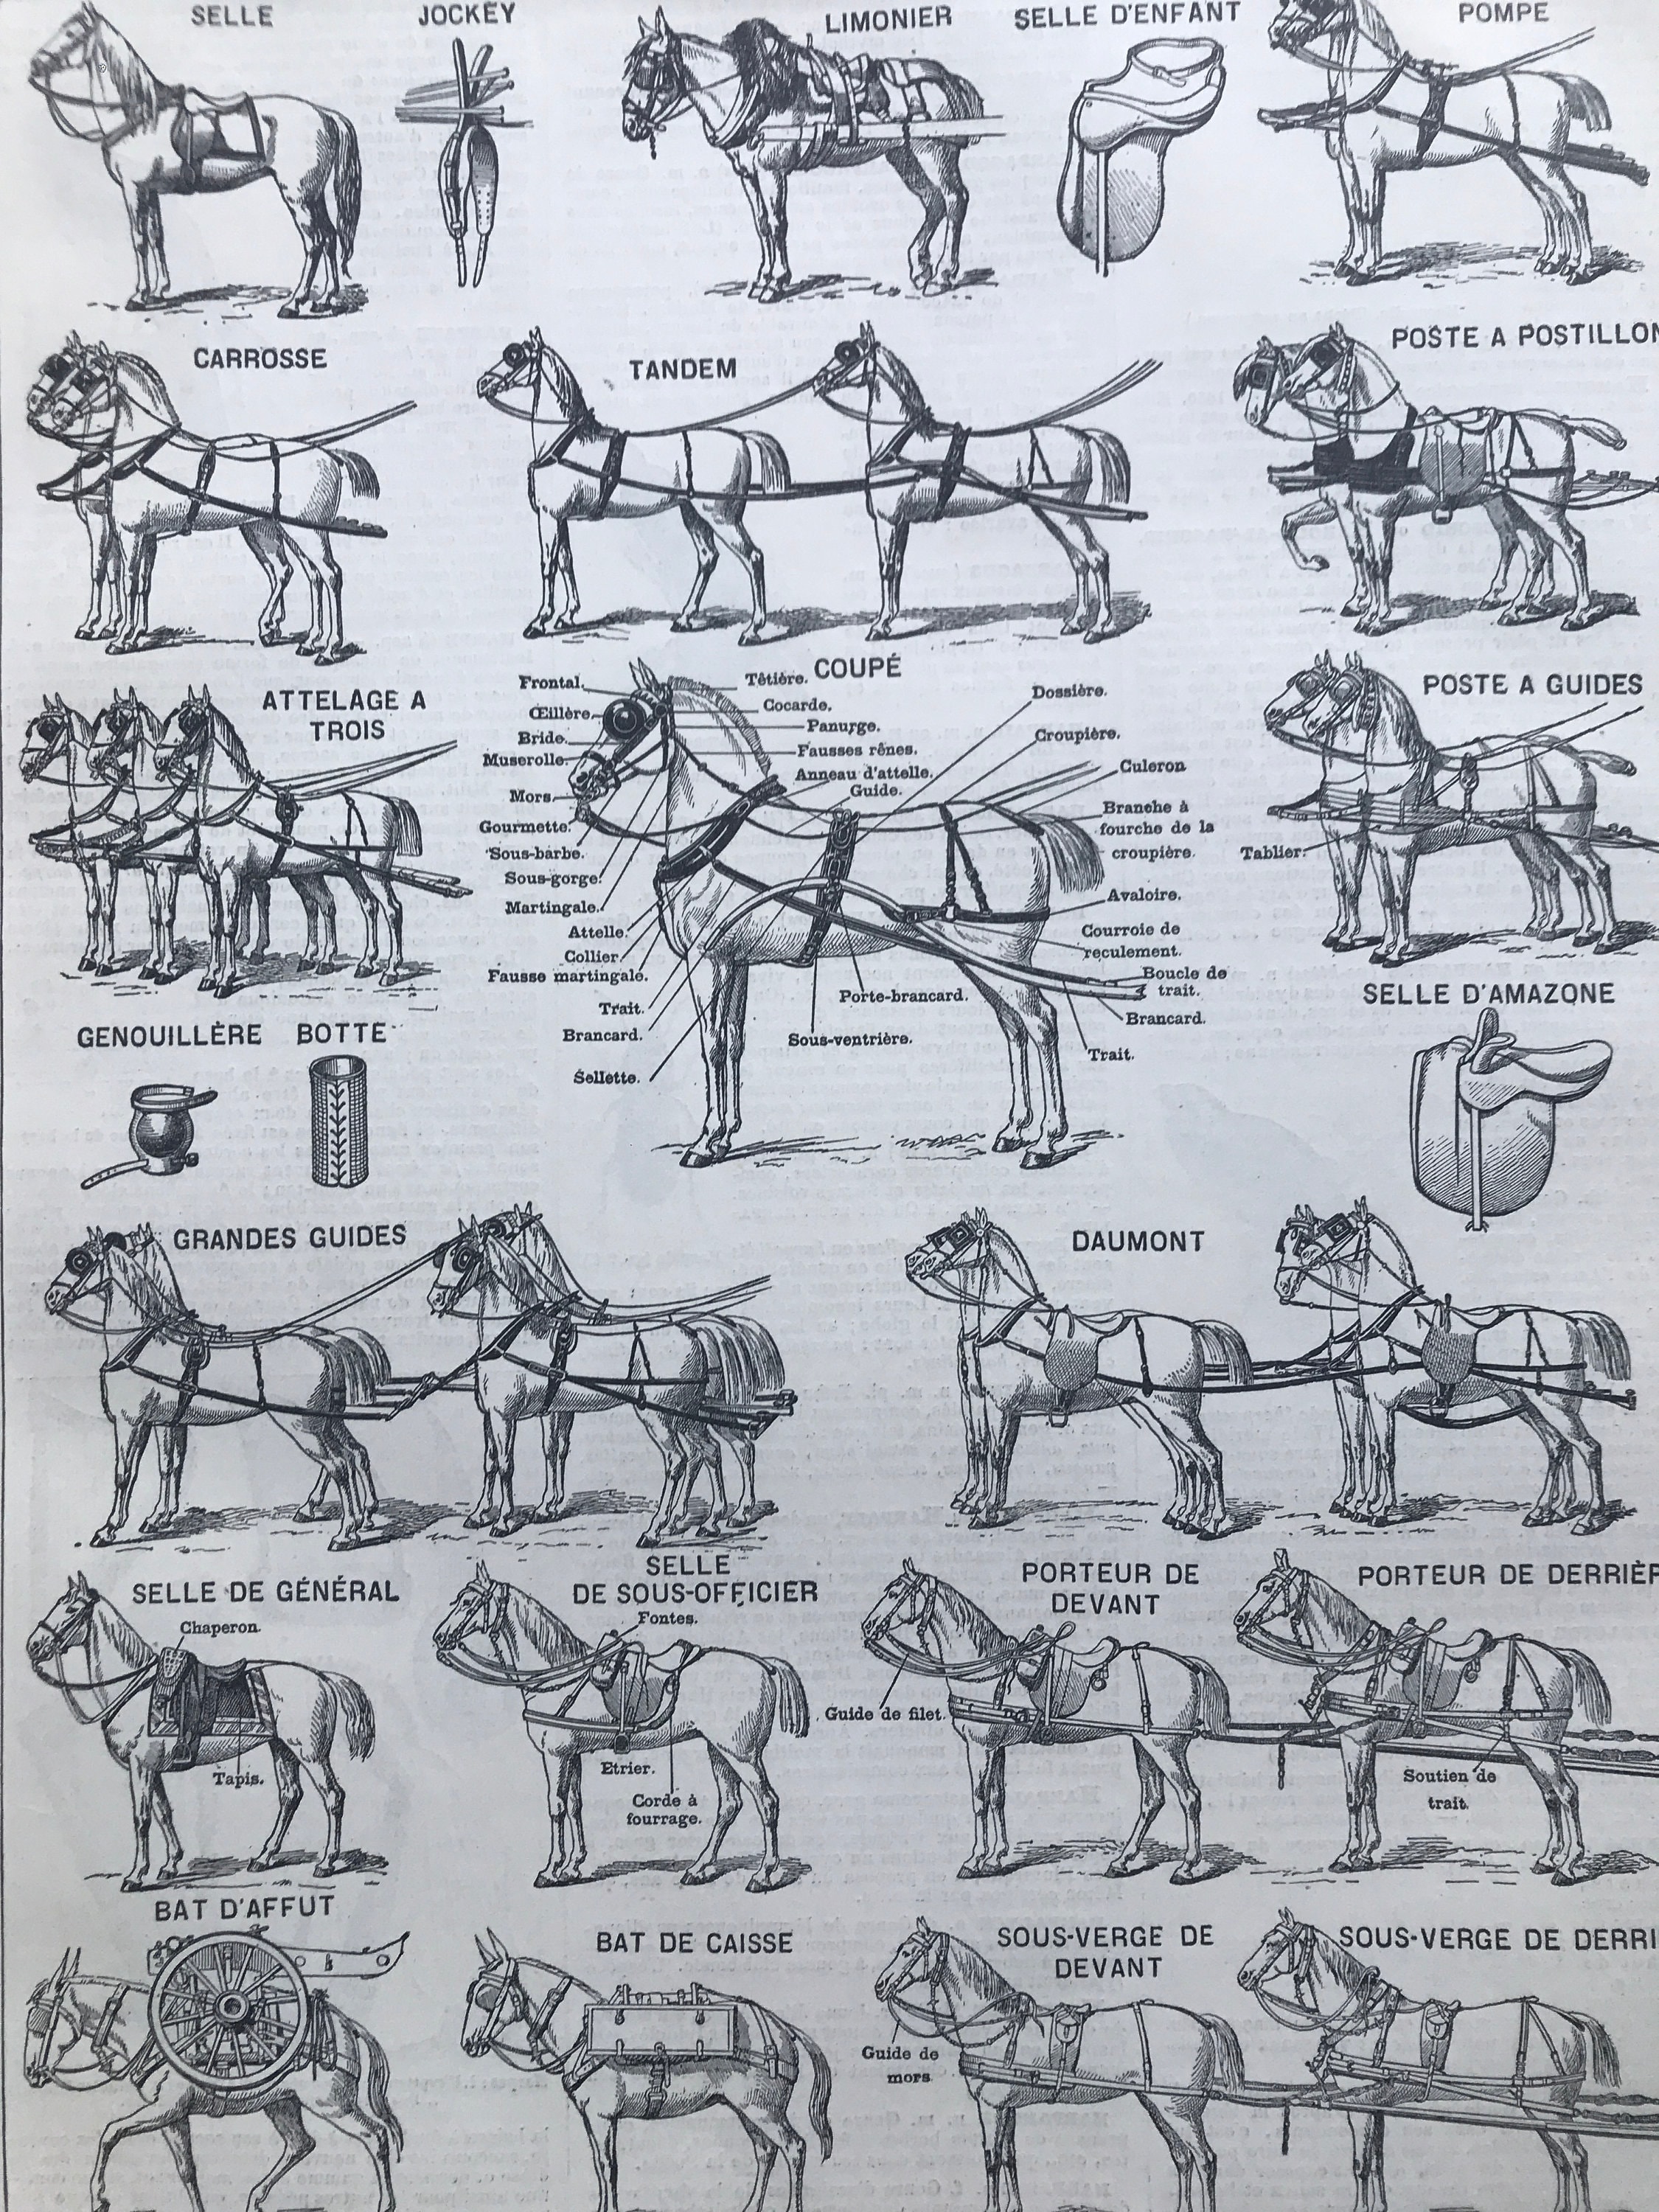 SELLE
JOCKEY
LIMONIER
SELLE D'ENFANT
POMPE
CARROSSE
TANDEM
POSTE A POSTILLON
ATTELAGE A
TROIS
COUPÉ
Frontal.
Œillère.
Bride.
Muserolle.
Mors.
Gourmette.
Sous-barbe.
Sous-gorge.
Martingale.
Attelle.
Collier.
Fausse martingale.
Trait.
Brancard.
Sellette.
Têtière.
Cocarde.
Panurge.
Fausses rênes.
Anneau d'attelle.
Guide.
Dossière.
Croupière.
Culeron
Branche à
fourche de la
croupière.
Avaloire.
Courroie de
reculement.
Boucle de
trait.
Brancard.
Trait.
Porte-brancard.
Sous-ventrière.
POSTE A GUIDES
Tablier.
GENOUILLÈRE
BOTTE
SELLE D'AMAZONE
GRANDES GUIDES
DAUMONT
SELLE DE GÉNÉRAL
Chaperon.
Tapis.
SELLE
DE SOUS-OFFICIER
Fontes.
Etrier.
Corde à
fourrage.
PORTEUR DE
DEVANT
Guide de filet.
PORTEUR DE DERRIÈR
Soutien de
trait.
BAT D'AFFUT
BAT DE CAISSE
SOUS-VERGE DE
DEVANT
Guide de
mors
SOUS-VERGE DE DERRI